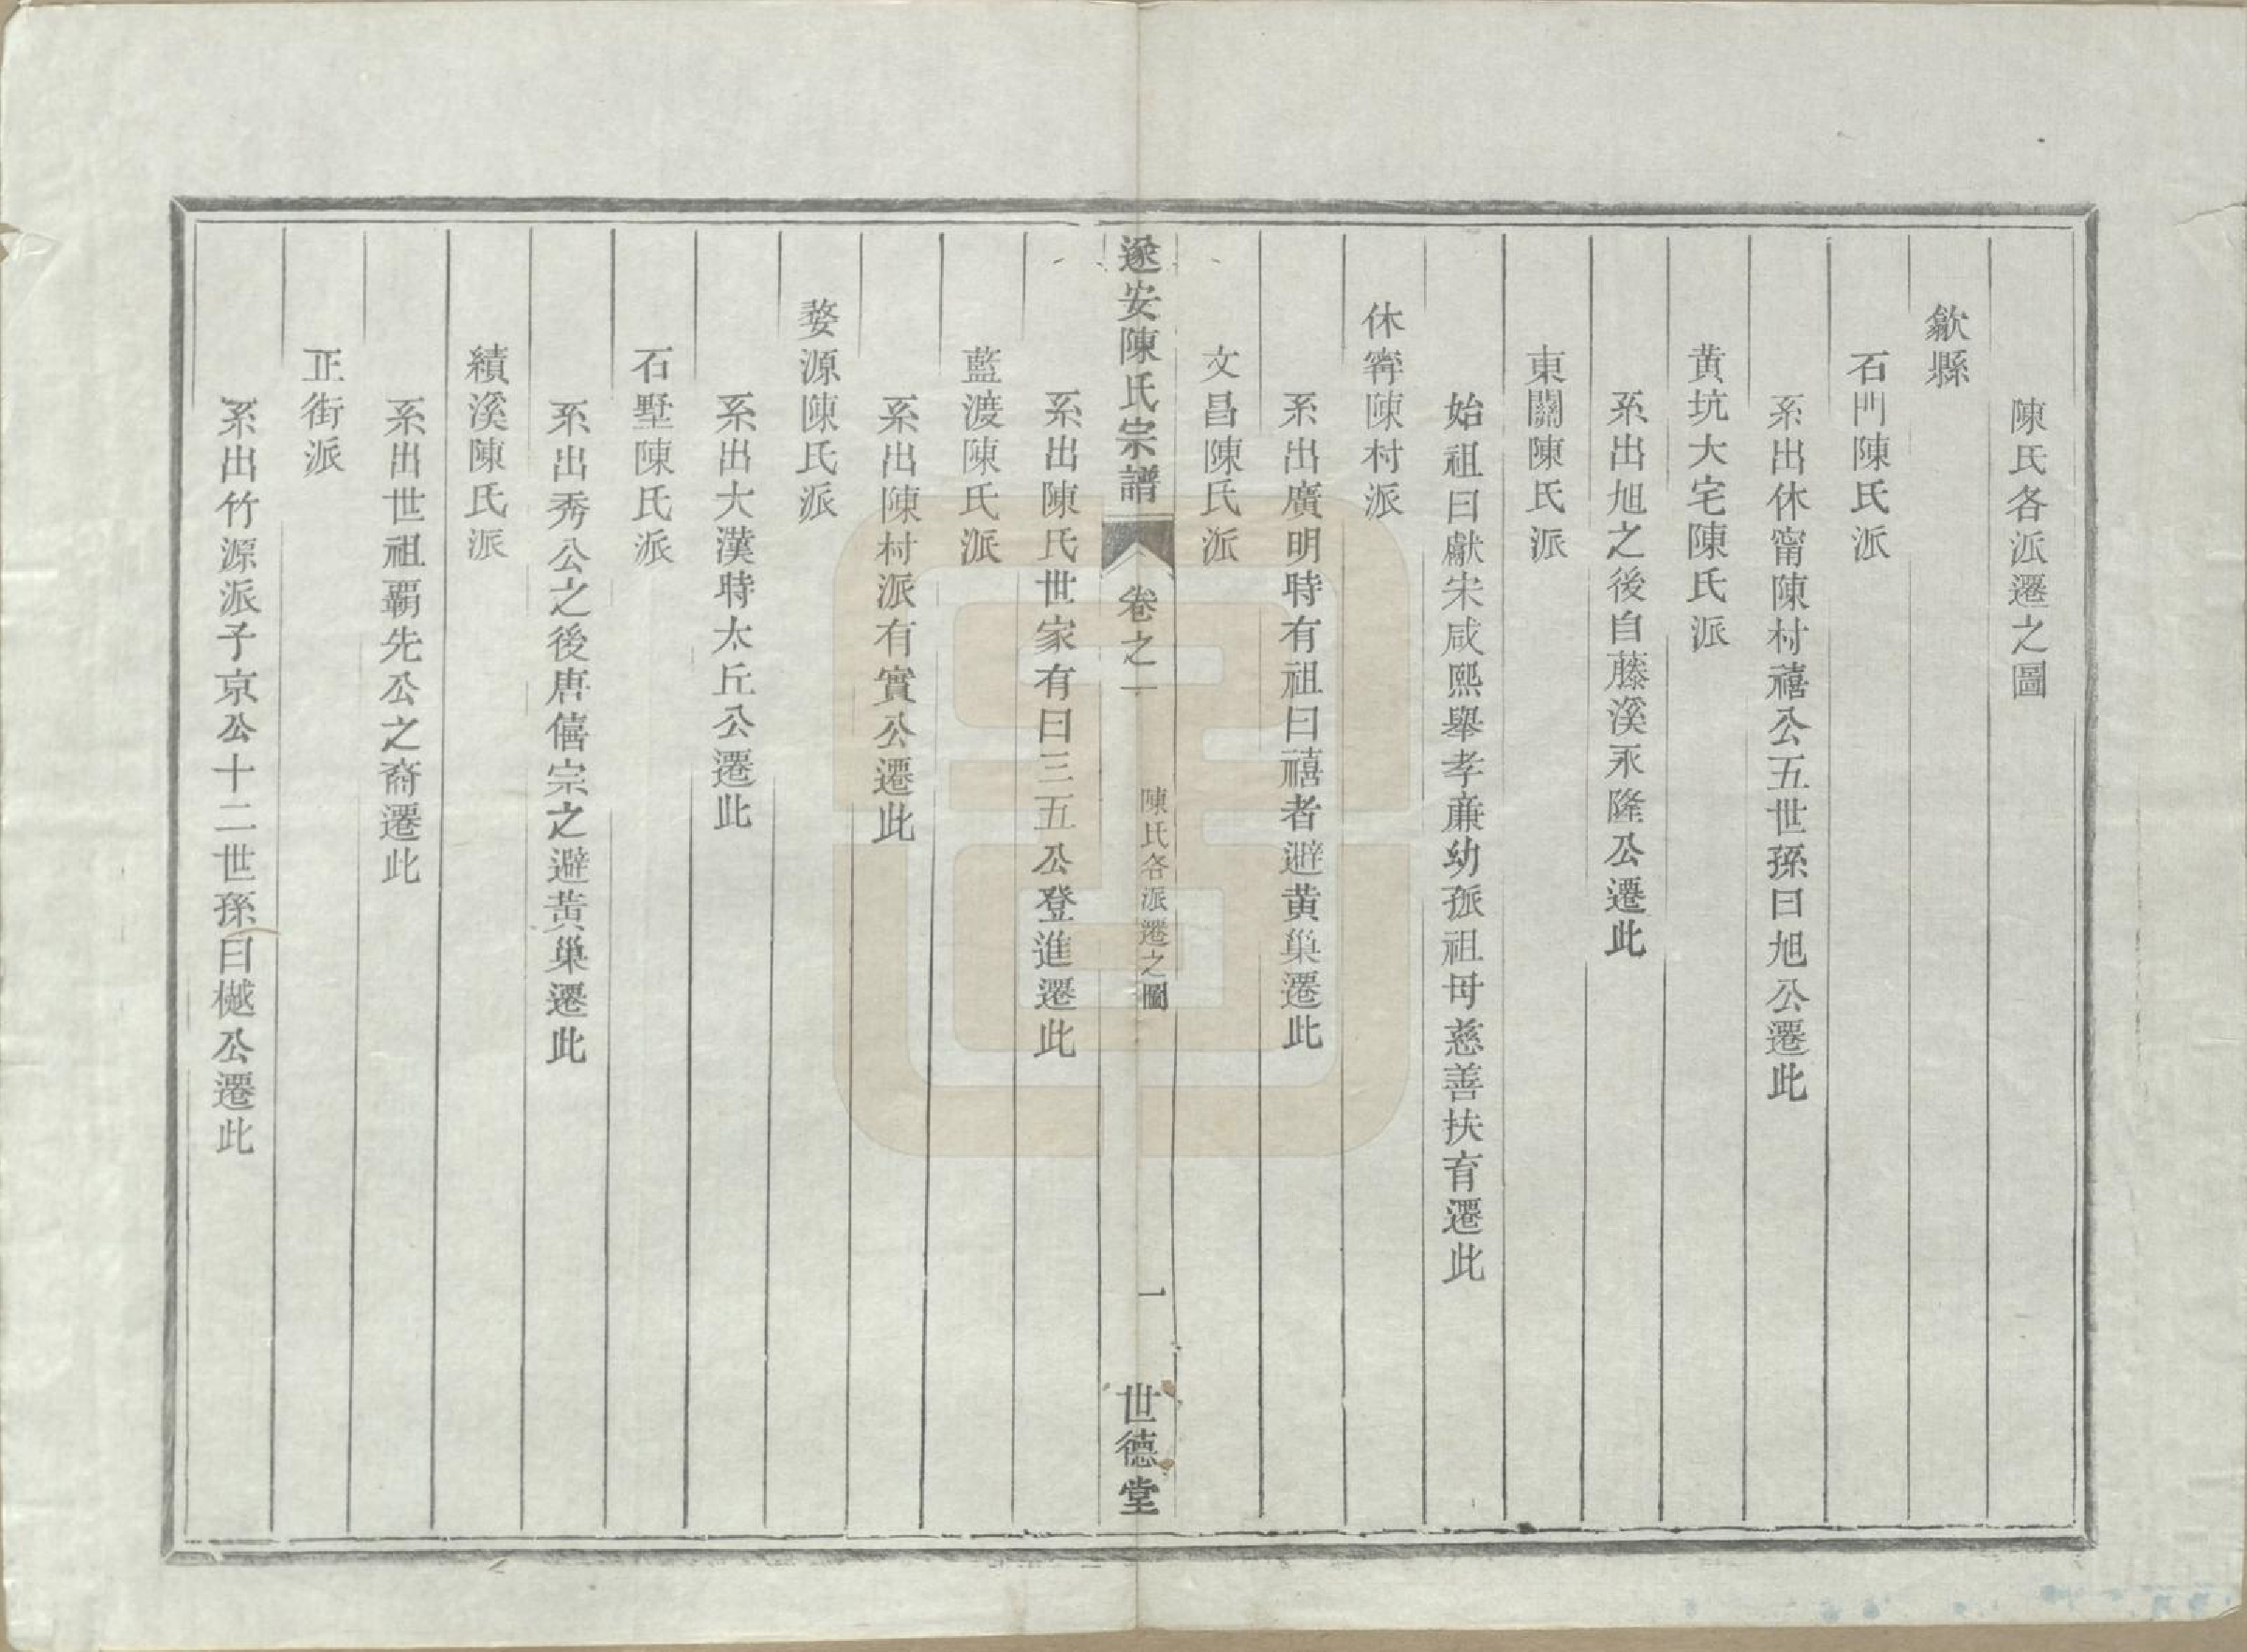 陳氏各派遷之圖
歙縣
石門陳氏派
系出休甯陳村禧公五世孫曰旭公遷此
黄坑大宅陳氏派
系出旭之後自藤溪永隆公遷此
東關陳氏派
始祖曰獻宋咸熙舉孝亷幼孤祖母慈善扶育遷此
休甯陳村派
系出廣明時有祖曰禧者避黄巢遷此
文昌陳氏派
遂安陳氏宗譜 卷之一 陳氏各派遷之圖 一 世德堂
系出陳氏世家有曰三五公登進遷此
藍渡陳氏派
系出陳村派有實公遷此
婺源陳氏派
系出大漢時太丘公遷此
石墅陳氏派
系出秀公之後唐僖宗之避黄巢遷此
績溪陳氏派
系出世祖霸先公之裔遷此
正街派
系出竹源派子京公十二世孫曰樾公遷此